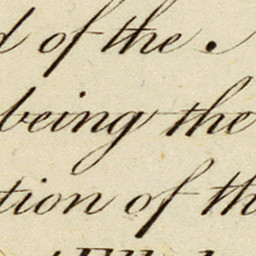 of the
being the
tion of th